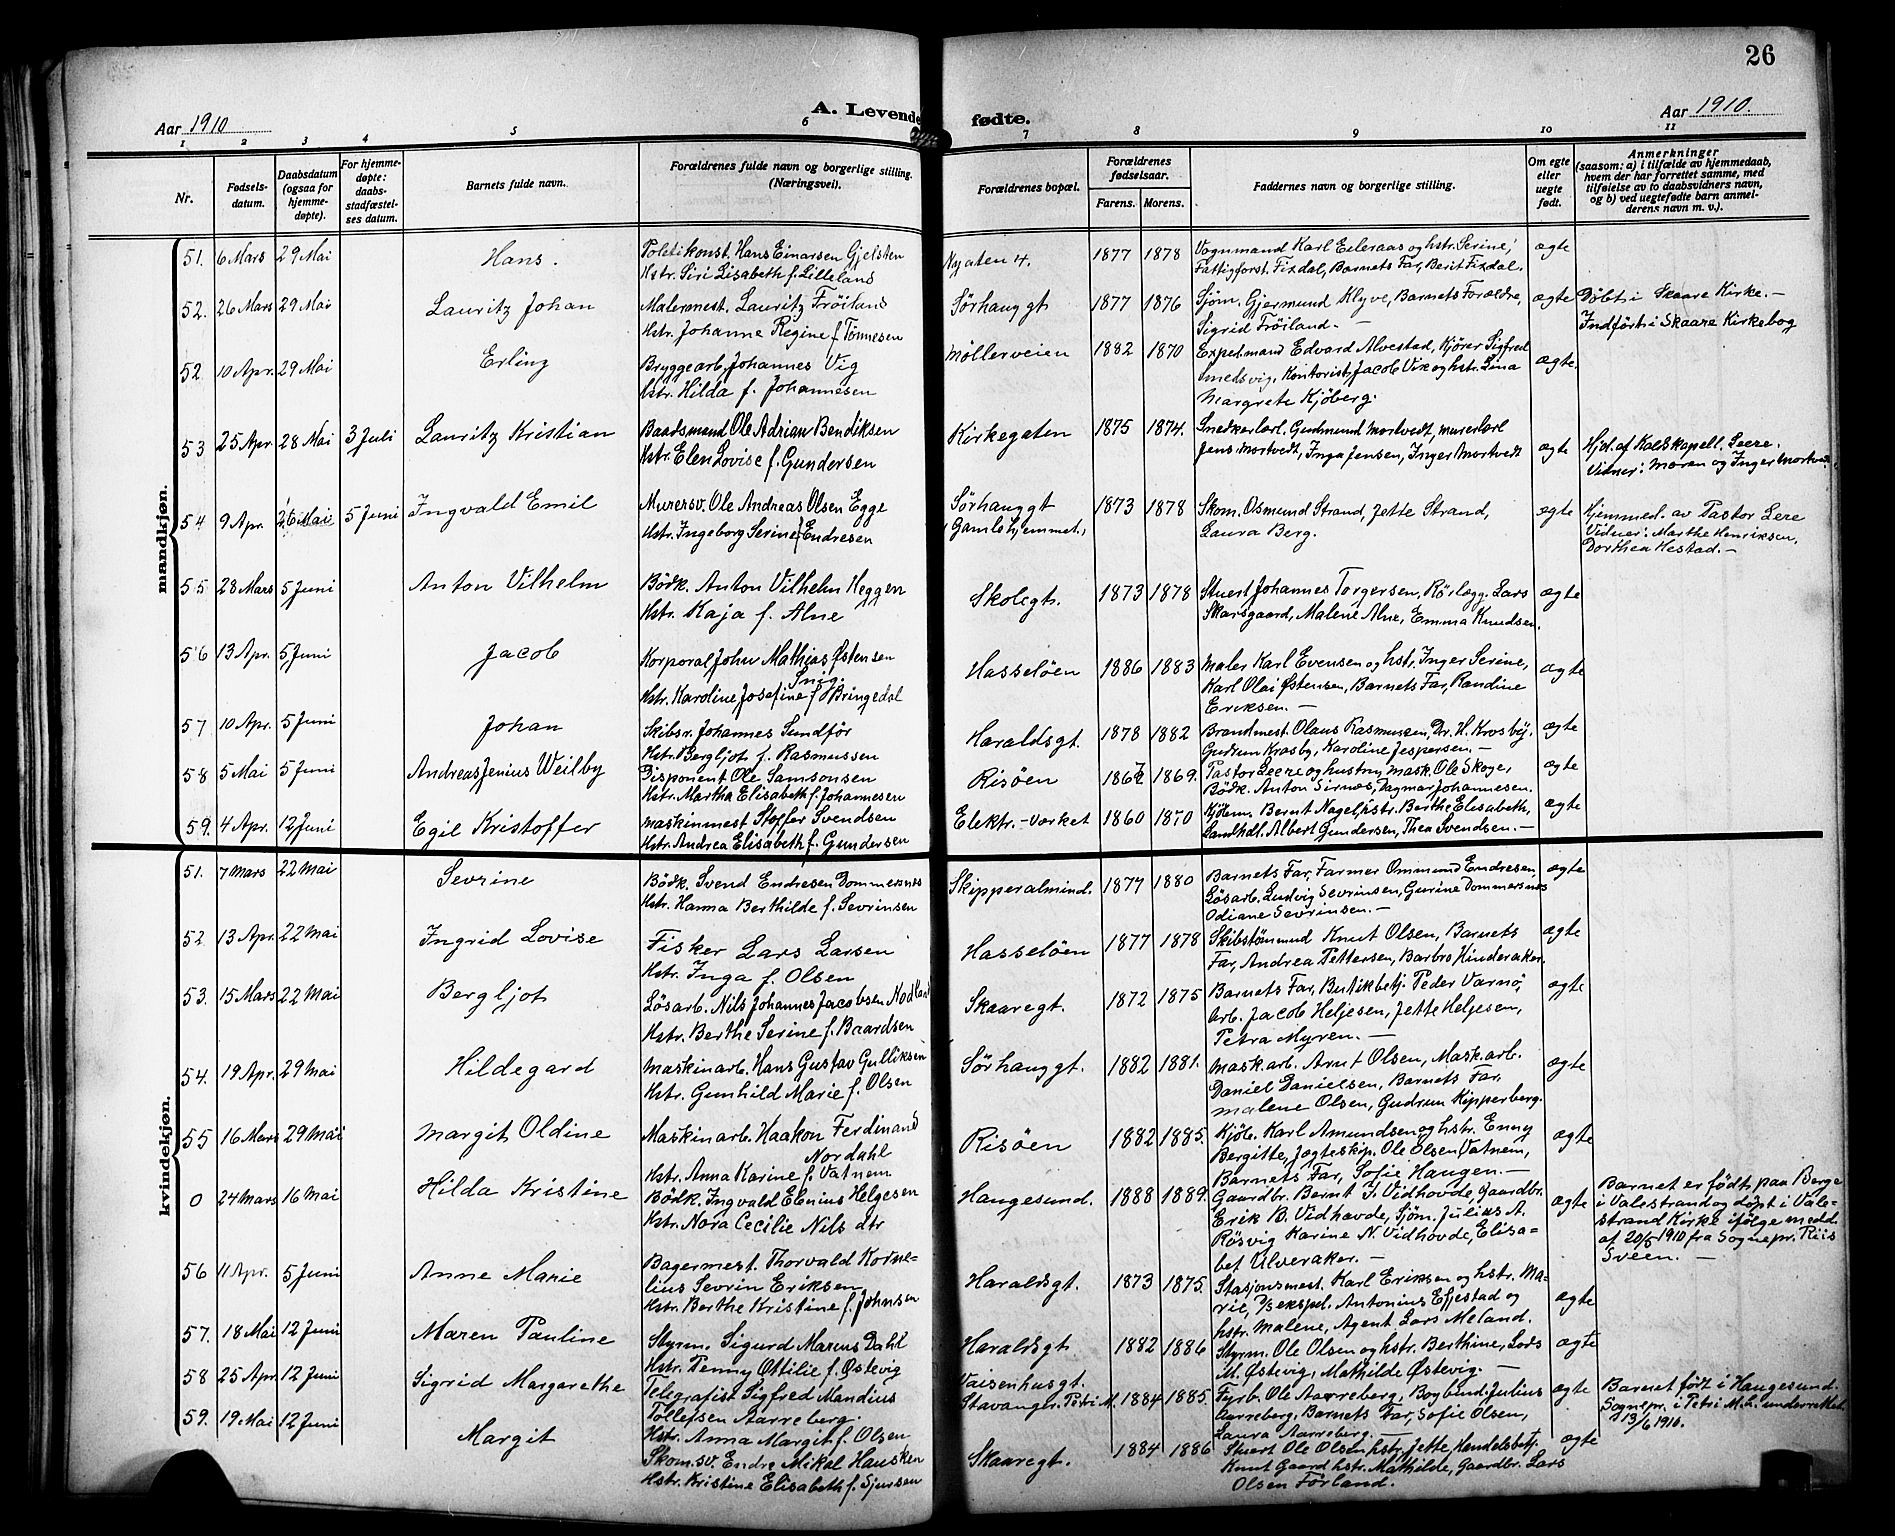 26
Aar 1910
A. Levende fødte.
Aar 1910.
1 2 3 4 5 6 7 8 9 10 11
Nr.
Fødsels-
datum.
Daabsdatum
(ogsaa for
hjemme-
døpte).
For hjemme-
døpte:
daabs-
stadfæstel-
ses datum.
Barnets fulde navn.
Forældrenes fulde navn og borgerlige stilling.
(Næringsvei).
Forældrenes bopæl.
Forældrenes
fødselsaar.
Farens. Morens.
Faddernes navn og borgerlige stilling.
Om egte
eller
uegte
født.
Anmerkninger
(saasom: a) i tilfælde av hjemmedaab,
hvem der har forrettet samme, med
tilføielse av to daabsvidners navn,
og b) ved uegtefødte barn anmel-
derens navn m. v.).
mandkjøn.
51. 6 Mars 29 Mai Hans. Politikonst. Hans Einarsen Gjelsten
Hstr. Siri Lisabeth f. Lilleland
Nygaten 4. 1877 1878 Vognmand Karl Eileraas og hstr. Serine,
Fattigforst. Fixdal, Barnets Far, Berit Fixdal.
ægte
52. 26 Mars 29 Mai Lauritz Johan Malermest. Lauritz Fröiland
Hstr. Johanne Regine f. Tönnesen
Sörhauggt 1877 1876 Sjöm. Gjermund Klyve, Barnets Forældre,
Sigrid Fröiland. —
ægte Döbt i Skaare Kirke. —
Indfört i Skaare Kirkebog
52 10 Apr. 29 Mai Erling Bryggearb. Johannes Vig
Hstr. Hilda f. Johannesen
Möllerveien 1882 1870 Exped.mand Edvard Alvestad, Kjörer Sigfred
Smedsvig, Kontorist, Jacob Vik og hstr. Lina
Margrete Kjöberg.
ægte.
53 25 Apr. 28 Mai 3 Juli Lauritz Kristian Baadsmand Ole Adrian Bendiksen
Hstr. Elen Lovise f. Gundersen
Kirkegaten 1875 1874. Snedkerlærl. Gudmund Mortvedt, murerlærl
Jens Mortvedt, Inga Jensen, Inger Mortvedt
ægte Hjd. af Kaldskapell. Leere.
Vidner: Moren og Inger Mortvedt
54 9 Apr. 26 Mai 5 Juni Ingvald Emil Murersv. Ole Andreas Olsen Egge
Hstr. Ingeborg Serine f. Endresen
Sörhauggt
(Gamlehjemmet.) 1873 1878 Skom. Osmund Strand, Jette Strand,
Laura Berg.
ægte Hjemmed. av Pastor Lere
Vidner: Marthe Henriksen,
Dorthea Hestad. —
55 28 Mars 5 Juni Anton Vilhelm Bödk. Anton Vilhelm Heggen
Hstr. Kaja f. Alne
Skolegt. 1873 1878 Stuert Johannes Torgersen, Rörlegg. Lars
Skarsgaard, Malene Alne, Emma Knudsen.
ægte
56 13 Apr. 5 Juni Jacob Korporal John Mathias Östensen
Snig.
Hstr. Karoline Josefine f. Bringedal
Hasselöen 1886 1883 Maler Karl Evensen og hstr. Inger Serine,
Karl Olai Östensen, Barnets Far, Randine
Eriksen. —
ægte
57 10 Apr. 5 Juni Johan Skibsr. Johannes Sundför
Hstr. Bergljot f. Rasmussen
Haraldsgt. 1878 1882 Brandmest. Olaus Rasmussen, Dr. H. Krosby,
Gudrun Krosby, Karoline Jespersen. —
ægte
58 5 Mai 5 Juni Andreas Jenius Weilby Disponent Ole Samsonsen
Hstr. Martha Elisabeth f. Johannesen
Risöen 1867 1869. Pastor Leere og hustru, mask. Ole Skoge,
Bödk. Anton Sirnæs, Dagmar Johannesen.
ægte
59. 4 Apr. 12 Juni Egil Kristoffer Maskinmest Stoffer Svendsen
Hstr. Andrea Elisabeth f. Gundersen
Elektr.-værket 1860 1870 Kjöbm. Bernt Nagel, hstr. Berthe Elisabeth,
Landhdl. Albert Gundersen, Thea Svendsen. —
ægte
kvindekjøn.
51. 7 Mars 22 Mai Sevrine Bödk. Svend Endresen Dommersnes
Hstr. Hanna Berthilde f. Sevrinsen
Skipperalmind. 1877 1880 Barnets Far, Farmer Ommund Endresen,
Lösarb. Ludvig Sevrinsen, Gurine Dommersnes
Odiane Sevrinsen. —
ægte
52 13 Apr. 22 Mai Ingrid Lovise Fisker Lars Larsen
Hstr. Inga f. Olsen
Hasselöen 1877 1878 Skibstömmand Knut Olsen, Barnets
Far, Andrea Pettersen, Barbro Kinderaker.
ægte
53. 15 Mars 22 Mai Bergljot Lösarb. Nils Johannes Jacobsen Nodland
Hstr. Berthe Serine f. Baardsen
Skaaregt. 1872 1875 Barnets Far, Butikbetj. Peder Varnö,
Arb. Jacob Heljesen, Jette Heljesen,
Petra Myren. —
ægte
54. 19 Apr. 29 Mai Hildegard Maskinarb. Hans Gustav Gulliksen
Hstr. Gunhild Marie f. Olsen
Sörhauggt. 1882 1881. Mask.arb. Arnt Olsen, Mask.arb.
Daniel Danielsen, Barnets Far,
Malene Olsen, Gudrun Kipperberg.
ægte
55 16 Mars 29 Mai Margit Oldine Maskinarb. Haakon Ferdinand
Nordahl
Hstr. Anna Karine f. Vatnem
Risöen 1882 1885. Kjöb. Karl Amundsen og hstr. Enny
Bergitte, Jagteskip. Ole Olsen Vatnem,
Barnets Far, Sofie Haugen. —
ægte
0 24 Mars 16 Mai Hilda Kristine Bödk. Ingvald Elenius Helgesen
Hstr. Nora Cecilie Nils dtr
Haugesund. 1888 1889. Gaardbr. Bernt J. Vidhovde, Gaardbr.
Erik B. Vidhovde, Sjöm. Julius A.
Rösvig Karine N. Vidhovde, Elisa-
bet Ulveraker. —
ægte Barnet er födt paa Berge
i Valestrand og döpt i Vale-
strand Kirke ifölge medd.
af 20/5 1910 fra Sognepr. Riis
Sveen. —
56 11 Apr. 5 Juni Anne Marie Bagermest. Thorvald Korne-
lius Sevrin Eriksen
Hstr. Berthe Kristine f. Johnsen
Haraldsgt. 1873 1875. Stasjonsmest. Karl Eriksen og hstr. Ma-
rie, D/S ekspd. Antonius Effestad og
hstr. Malene, Agent Lars Meland.
ægte
57. 18 Mai 12 Juni Maren Pauline Styrm. Sigurd Marcus Dahl
Hstr. Penny Ottilie f. Östevig
Haraldsgt 1882 1886 Styrm. Ole Olsen og hstr. Berthine, Lods
M. Östevig, Mathilde Östevig. —
ægte
58 25 Apr 12 Juni Sigrid Margarethe Telegrafist Sigfred Mandius
Tollefsen Aarreberg.
Hstr. Anna Margit f. Olsen
Vaisenhusgt.
Stavanger, Petri M. 1884 1885. Fyrb. Ole Aarreberg, Bogbind. Julius
Aarreberg, Barnets Far, Sofie Olsen,
Laura Aarreberg. —
ægte Barnet födt i Haugesund.
Sognepr. i Petri M. L. underrettet
13/6 1910.
59. 19 Mai 12 Juni Margit Skom.sv. Endre Mikal Hausken
Hstr. Kristine Elisabeth f. Sjursen
Skaaregt. 1884 1886 Stuert Ole Olsen hstr. Jette, Handelsbetj.
Knut Gaard hstr. Mathilde, Gaardbr. Lars
Olsen Förland.
ægte